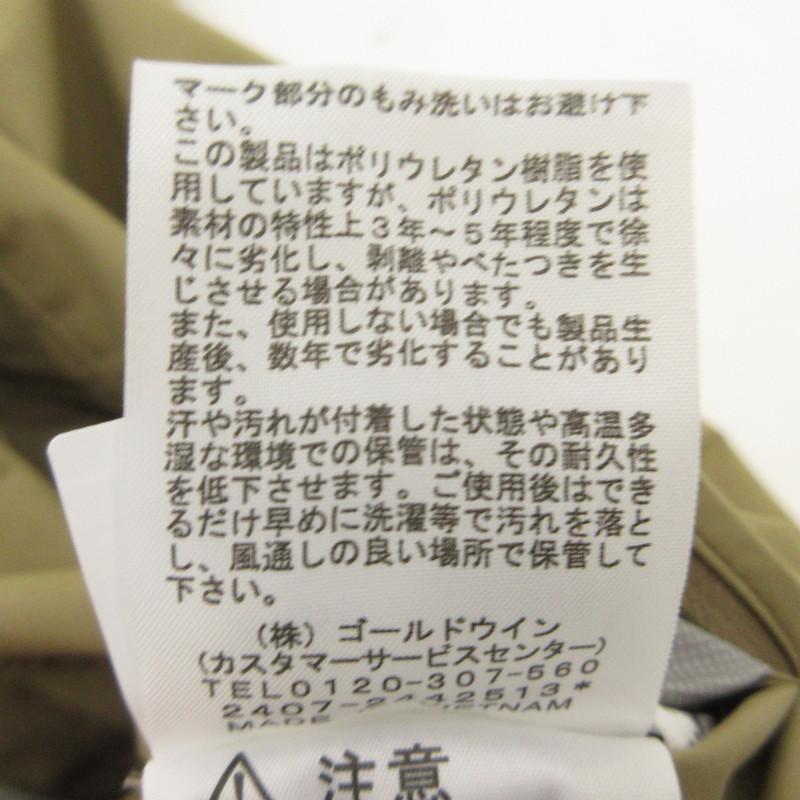 マーク部分のもみ洗いはお避け下
さい。
この製品はポリウレタン樹脂を使
用していますが、ポリウレタンは
素材の特性上3年～5年程度で徐
々に劣化し、剥離やべたつきを生
じさせる場合があります。
また、使用しない場合でも製品生
産後、数年で劣化することがあり
ます。
汗や汚れが付着した状態や高温多
湿な環境での保管は、その耐久性
を低下させます。ご使用後はでき
るだけ早めに洗濯等で汚れを落と
し、風通しの良い場所で保管して
下さい。
(株) ゴールドウイン
(カスタマーサービスセンター)
TEL0120-307-560
2407-2442513*
MADE VIETNAM
注意